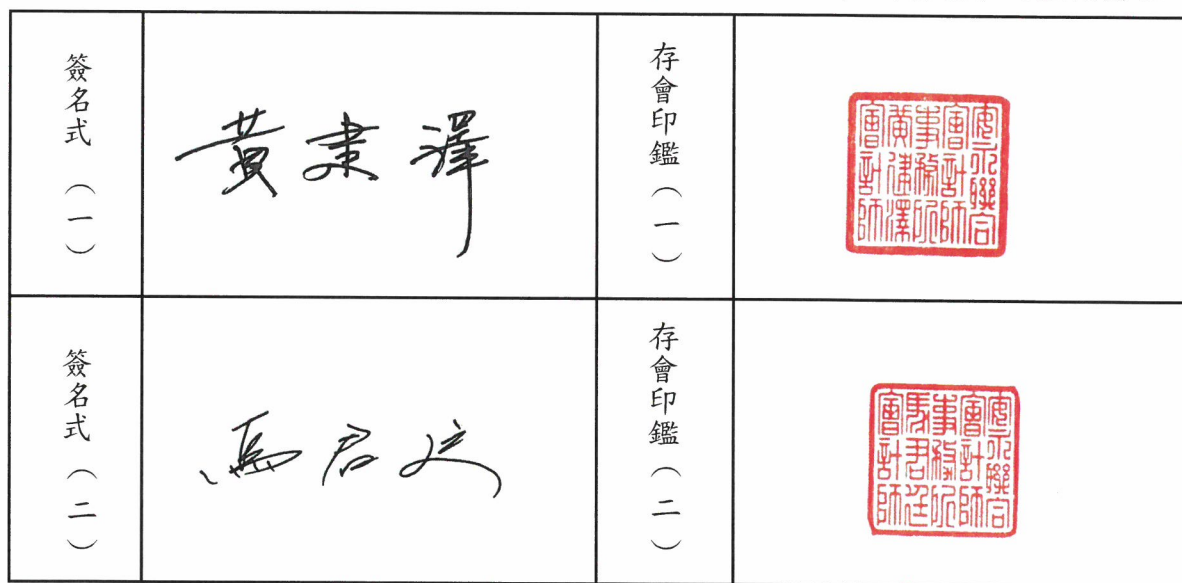 簽名式（一）
黃建澤
存會印鑑（一）
安永聯合
會計師
事務所
黃建澤
會計師
簽名式（二）
馬君廷
存會印鑑（二）
安永聯合
會計師
事務所
馬君廷
會計師